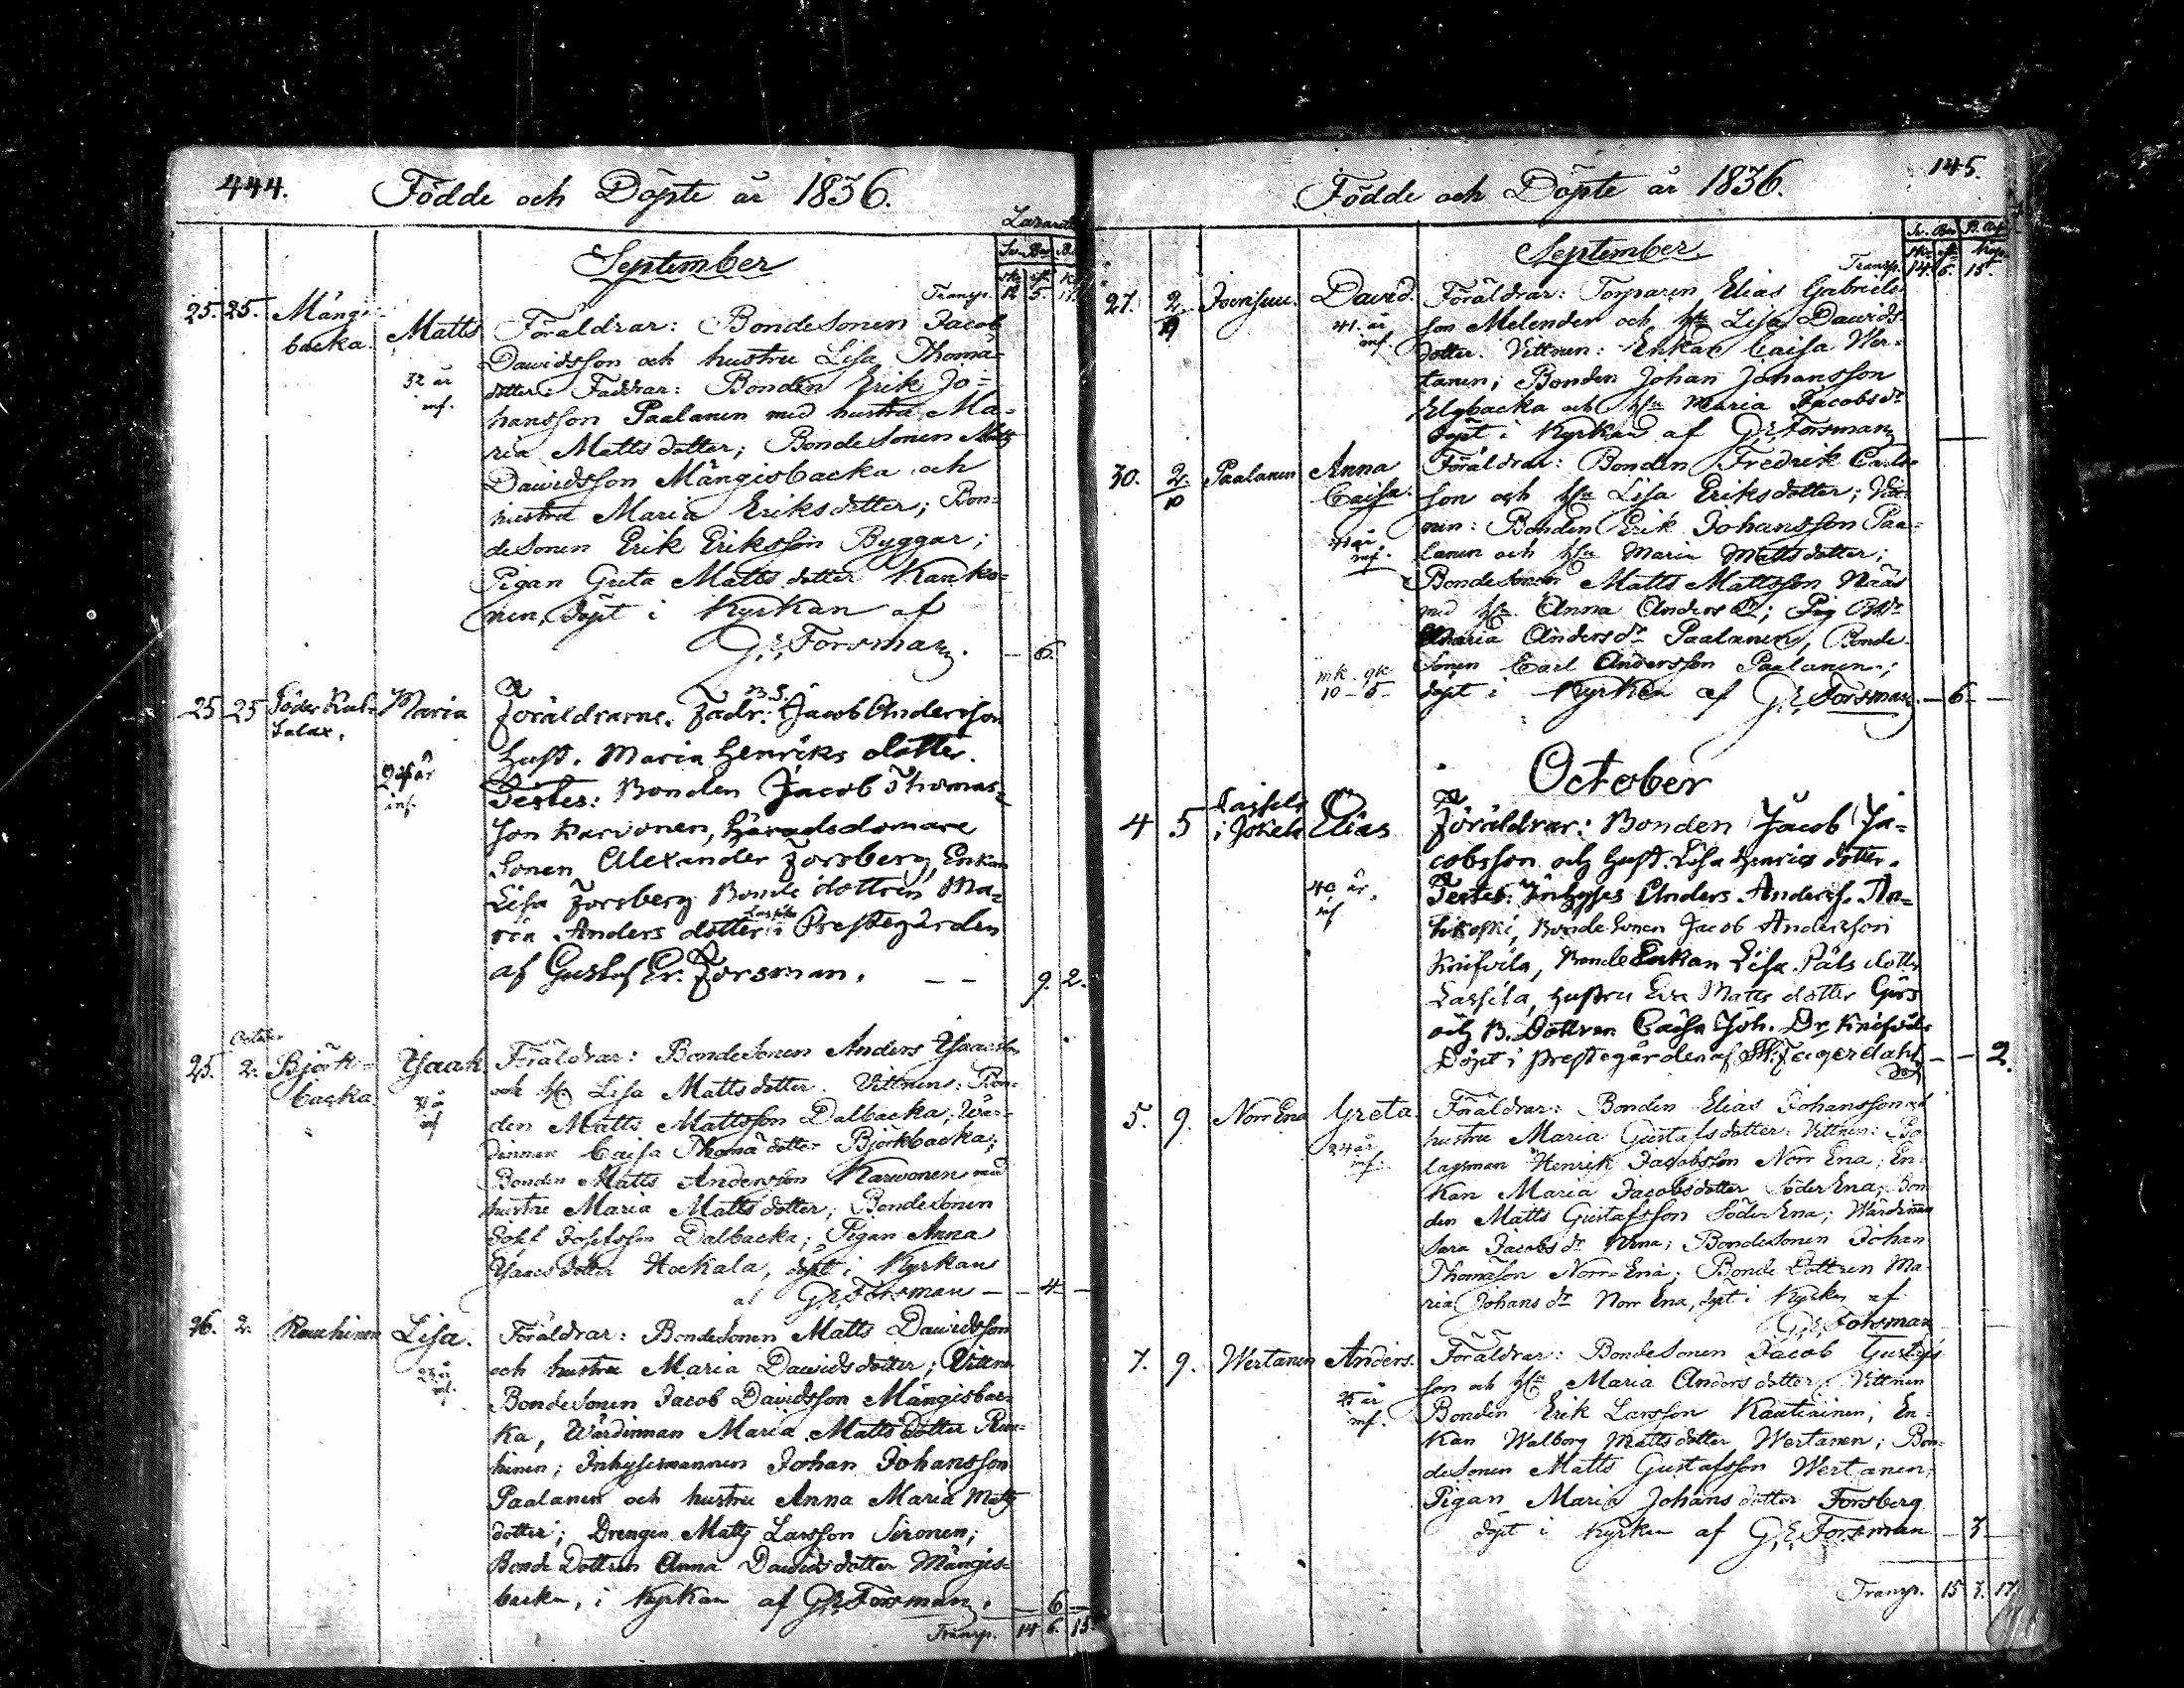 444.
Födde och Döpte år 1836.
September
Transp. 12. 5.
25. 25. Mängis-
backa.
Matts
32 år
inf.
Föräldrar: Bondesonen Jacob
Dawidsson och hustru Lisa Thomä-
dotter. Faddrar: Bonden Erik Jo-
hansson Paalanen med hustru Ma-
ria Mattsdotter; Bondesonen Matts
Dawidsson Mängisbacka och
hustru Maria Eriksdotter; Bon-
desonen Erik Eriksson Byggar;
Pigan Greta Mattsdotter Kanko-
nen, döpt i Kyrkan af
G. E. Forsman. — 6.
25 25 Maria
inf.
Föräldrarne. Fadr: B. S. Jacob Andersson
Hust. Maria Henriks dotter.
Testes: Bonden Jacob Thomas-
son Karvonen, Häradsdomare
Sonen Alexander Forsberg, Enkan
Lisa Forsberg Bonde dottren Ma-
ria Anders dotter i Prestegården
af Gustaf Er. Forsman. — — 9. 2.
October
25. 2. Björk-
backa.
Ysaak
inf
Föräldrar: Bondesonen Anders Ysacsson
och h. Lisa Mattsdotter. Vittnen: Bon-
den Matts Mattsson Dalbacka, Wär-
dinnan Caisa Thomädotter Björkbacka;
Bonden Matts Andersson Karwonen med
hustru Maria Mattsdotter; Bondesonen
Josef Josefsson Dalbacka; Pigan Anna
Ysacsdotter Hockala, döpt i Kyrkan
af G. E. Forsman — — 4 —
26. 2. Rauhinen
Lisa.
inf.
Föräldrar: Bondesonen Matts Dawidsson
och hustru Maria Dawidsdotter; Vittn.
Bondesonen Jacob Davidsson Mängisbac-
ka, Wärdinnan Maria Matts Dotter Rau-
hinen; Inhysesmannen Johan Johansson
Paalanen och hustru Anna Maria Matts
dotter; Drengen Matts Larsson Sironen;
Bonde Dottren Anna Dawidsdotter Mängis-
backa, i Kyrkan af G. E. Forsman. — 6 —
Transp. 14 6. 15.
145.
Födde och Döpte år 1836.
September
Transp. 14. 6. 15.
27. 2/10
David.
41 år
inf.
Föräldrar: Torparen Elias Gabriels-
son Melender och hu Lisa Dawids-
dotter. Vittnen: Enkan Caisa Wer-
tanen; Bonden Johan Johansson
Elgbacka och hu Maria Jacobs dr
döpt i Kyrkan af G. E. Forsman
30. 2/10 Paalanen
Anna
Caisa.
inf.
Föräldrar: Bonden Fredrik Carls-
son och hu Lisa Eriksdotter; Vitt-
nen: Bonden Erik Johansson Paa-
lanen och hu Maria Mattsdotter;
Bondesonen Matts Mattsson Nääs
med hu Anna Anders Dr; Pig
Maria Anders dr Paalanen, Bonde-
Sonen Carl Andersson Paalanen;
döpt i Kyrkan af G. E. Forsman. — 6 —
October
4 5 Lassila
i Jokela
Elias
40 år.
inf
Föräldrar: Bonden Jacob Ja-
cobsson och Hust. Lisa Henrics dotter.
Testes: Inhyses Anders Anders. An-
tikoski, Bonde Sonen Jacob Andersson
Knifvila, Bonde Enkan Lisa Påls dotter
Lassila, Hustru Eva Matts dotter Görs
och B. Dottren Caisa Joh. Dr. Knifvila
Döpt i Prestegården af — — 2.
5. 9. Norr Ena
Greta.
34 år
inf.
Föräldrar: Bonden Elias Johansson och
hustru Maria Gustafsdotter. Vittnen: Bo-
lagsman Henrik Jacobsson Norr Ena; En-
kan Maria Jacobsdotter Söder Ena; Bon-
den Matts Gustafsson Söder Ena; Wärdinnan
Sara Jacobs dr Ena; Bondesonen Johan
Thomasson Norr Ena; Bonde Dottren Ma-
ria Johans dr Norr Ena, döpt i Kyrkan af
G. E. Forsman
7. 9. Wertanen
Anders.
25 år
inf.
Föräldrar: Bondesonen Jacob Gustafs-
son och hu Maria Andersdotter. Vittnen
Bonden Erik Larsson Kautiainen; En-
kan Walborg Mattsdotter Wertanen; Bon-
desonen Matts Gustafsson Wertanen;
Pigan Maria Johansdotter Forsberg
döpt i Kyrkan af G. E. Forsman — 3 —
Transp. 15 3. 17.